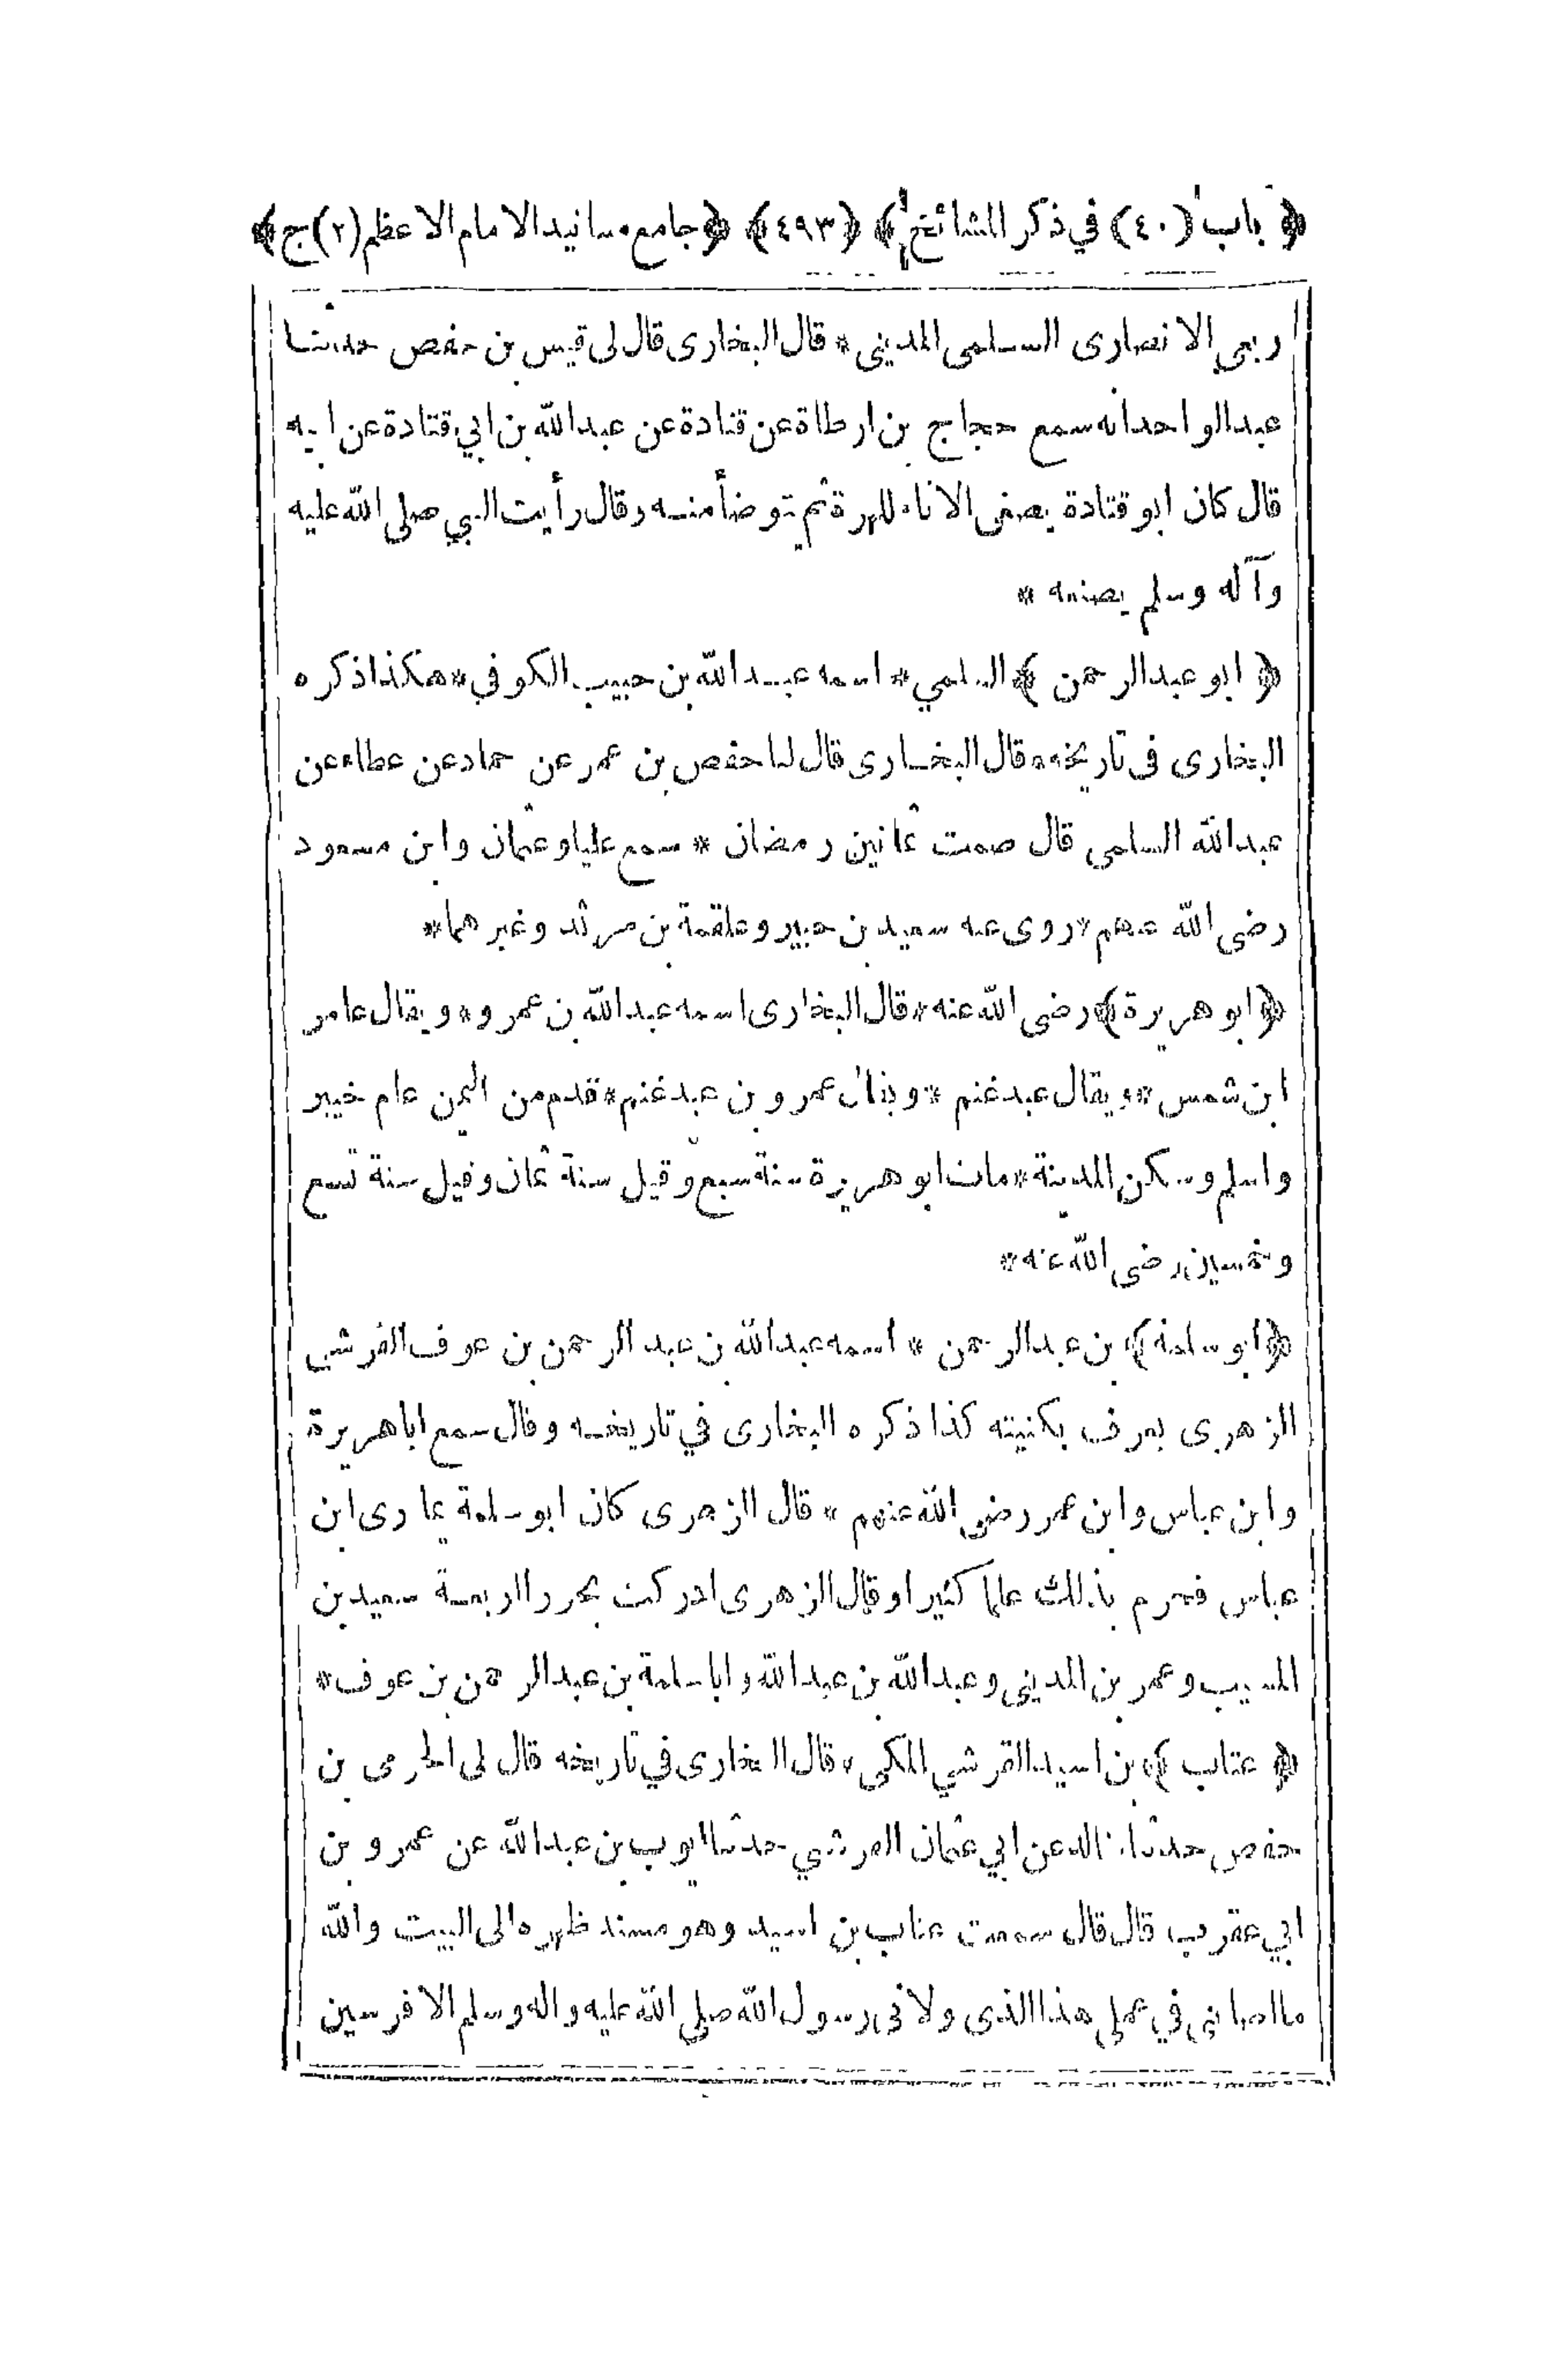 ﴿ باب (٤٠) في ذكر المشائخ ﴾ ﴿٤٩٣﴾ ﴿جامع مسانيد الامام الاعظم (٢) ج﴾
ربعي الانصارى السلمي المديني * قال البخارى قال لى قيس بن حفص حدثنا
عبد الواحد انه سمع حجاج بن ارطاة عن قتادة عن عبد الله بن ابي قتادة عن ابيه
قال كان ابو قتادة يصغى الاناء للهرة ثم يتوضأ منه وقال رأيت النبي صلى الله عليه
وآله وسلم يصنعه *
﴿ ابو عبد الرحمن ﴾ السلمي * اسمه عبد الله بن حبيب الكوفي * هكذا ذكره
البخارى فى تاريخه * قال البخارى قال لنا حفص بن عمر عن حماد عن عطاء عن
عبد الله السلمى قال صمت ثمانين رمضان * سمع عليا وعثمان وابن مسعود
رضى الله عنهم * روى عنه سعيد بن جبير وعلقمة بن مرثد وغيرهما *
﴿ابو هريرة﴾ رضى الله عنه * قال البخارى اسمه عبد الله بن عمرو * ويقال عامر
ابن شمس * ويقال عبد غنم * ويقال عمرو بن عبد غنم * قدم من اليمن عام خيبر
واسلم وسكن المدينة * مات ابو هريرة سنة سبع وقيل سنة ثمان وقيل سنة تسع
وخمسين رضى الله عنه *
﴿ابو سلمة﴾ بن عبد الرحمن * اسمه عبد الله بن عبد الرحمن بن عوف القرشى
الزهرى يعرف بكنيته كذا ذكره البخارى في تاريخه وقال سمع ابا هريرة
وابن عباس وابن عمر رضى الله عنهم * قال الزهرى كان ابو سلمة يمارى ابن
عباس فحرم بذلك علما كثيرا وقال الزهرى ادركت بحورا اربعة سعيد بن
المسيب وعمر بن المديني وعبد الله بن عبد الله وابا سلمة بن عبد الرحمن بن عوف *
﴿ عتاب ﴾ بن اسيد القرشي المكى * قال البخارى في تاريخه قال لى الحرمى بن
حفص حدثنا خالد عن ابي عثمان القرشي حدثنا ايوب بن عبد الله عن عمرو بن
ابي عقرب قال قال سمعت عتاب بن اسيد وهو مسند ظهره الى البيت والله
ما اصابنى في عملى هذا الذى ولانى رسول الله صلى الله عليه واله وسلم الا فرسين